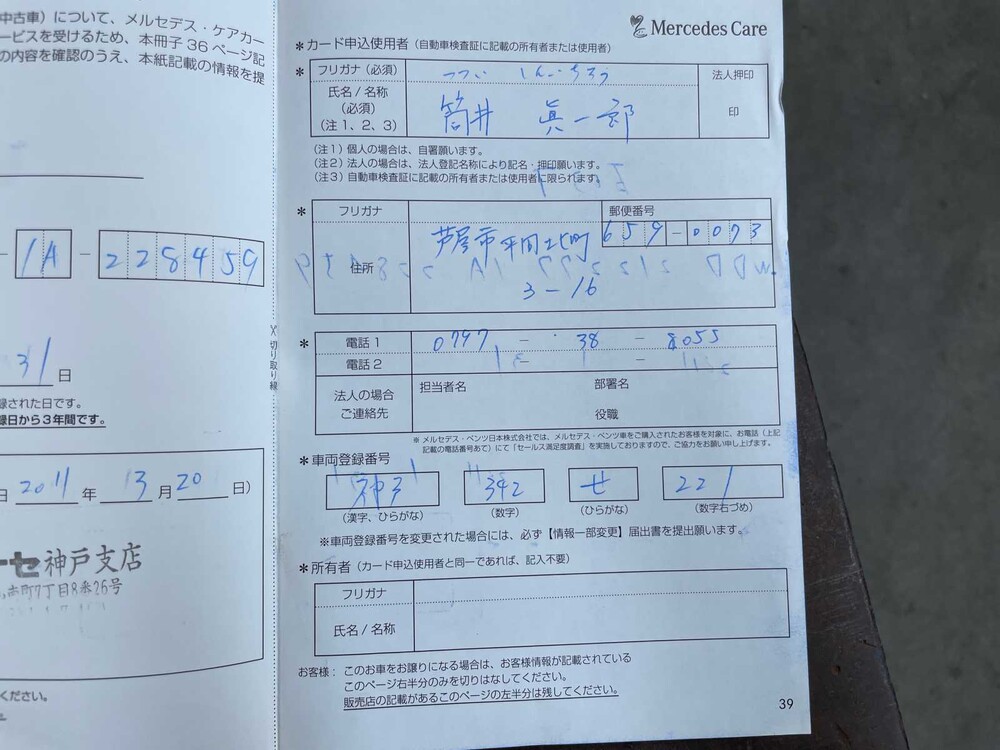 中古車）について、メルセデス・ケアカー
ービスを受けるため、本冊子36ページ記
の内容を確認のうえ、本紙記載の情報を提
1A - 228459
31 日
録された日です。
録日から3年間です。
日 2011 年 3 月 20 日）
ーセ神戸支店
町7丁目8番26号
ください。
切り取り線
Mercedes Care
＊カード申込使用者（自動車検査証に記載の所有者または使用者）
＊ フリガナ（必須） つつい しんいちろう 法人押印
氏名／名称
（必須）
（注1、2、3） 筒井 眞一郎 印
（注1）個人の場合は、自署願います。
（注2）法人の場合は、法人登記名称により記名・押印願います。
（注3）自動車検査証に記載の所有者または使用者に限られます。
＊ フリガナ 郵便番号
659-0073
住所 芦屋市 町
3-16
＊ 電話1 0797 - 38 - 8055
電話2
法人の場合
ご連絡先 担当者名 部署名
役職
※メルセデス・ベンツ日本株式会社では、メルセデス・ベンツ車をご購入されたお客様を対象に、お電話（上記
記載の電話番号あて）にて「セールス満足度調査」を実施しておりますので、ご協力をお願い申し上げます。
＊車両登録番号
神戸 342 せ 221
（漢字、ひらがな） （数字） （ひらがな） （数字右づめ）
※車両登録番号を変更された場合には、必ず【情報一部変更】届出書を提出願います。
＊所有者（カード申込使用者と同一であれば、記入不要）
フリガナ
氏名／名称
お客様： このお車をお譲りになる場合は、お客様情報が記載されている
このページ右半分のみを切りはなしてください。
販売店の記載があるこのページの左半分は残してください。
39